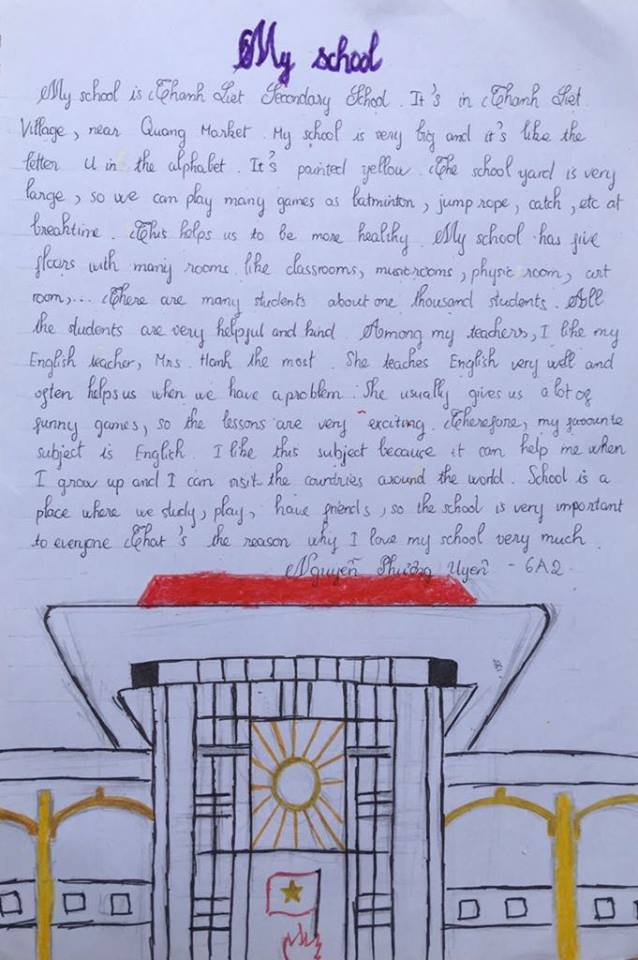 My school
My school is Thanh Liet Secondary School. It's in Thanh Liet
Village, near Quang Market. My school is very big and it's like the
letter U in the alphabet. It's painted yellow. The school yard is very
large, so we can play many games as batminton, jump rope, catch, etc at
breaktime. This helps us to be more healthy. My school has five
floors with many rooms like classrooms, music rooms, physic room, art
room,... There are many students about one thousand students. All
the students are very helpful and kind. Among my teachers, I like my
English teacher, Mrs. Hanh the most. She teaches English very well and
often helps us when we have a problem. She usually gives us a lot of
funny games, so the lessons are very exciting. Therefore, my favourite
subject is English. I like this subject because it can help me when
I grow up and I can visit the countries around the world. School is a
place where we study, play, have friends, so the school is very important
to everyone. That's the reason why I love my school very much.
Nguyễn Phương Uyên - 6A2.